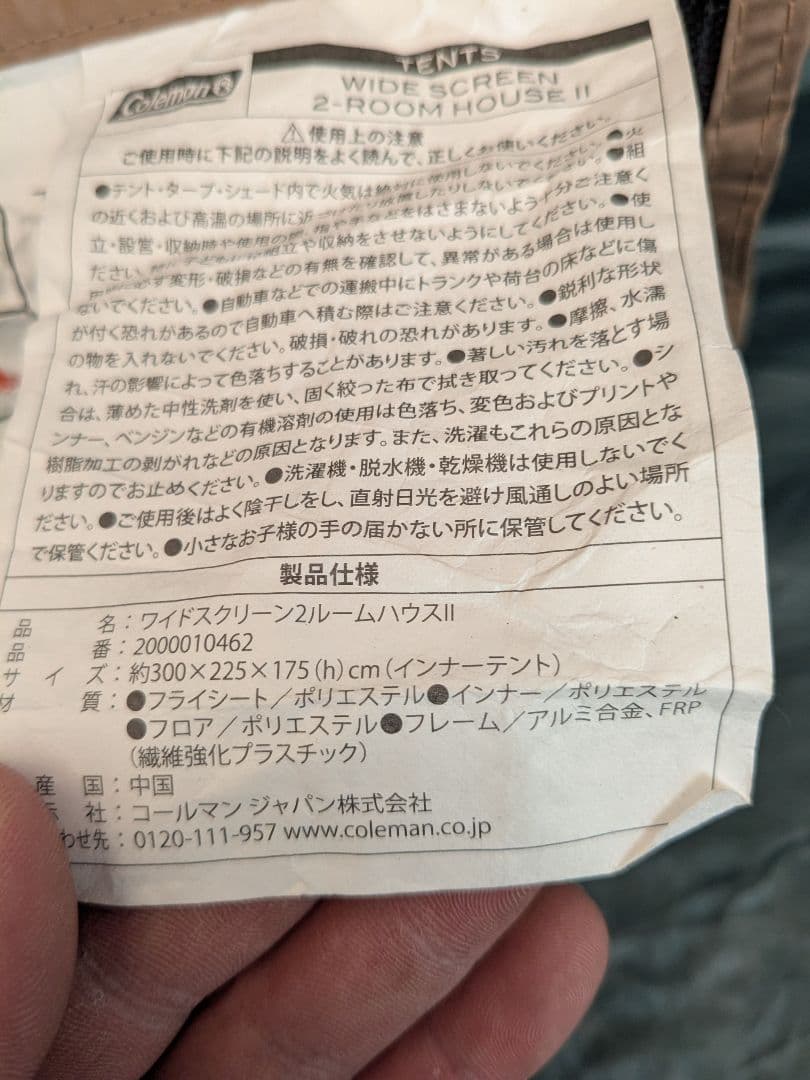 Coleman®
TENTS
WIDE SCREEN
2-ROOM HOUSE II
⚠使用上の注意
ご使用時に下記の説明をよく読んで、正しくお使いください。
●テント・タープ・シェード内で火気は絶対に使用しないでください。●火
の近くおよび高温の場所に近づけたり放置したりしないでください。●組
立・設営・収納時や使用の際、指や手などをはさまないよう十分ご注意く
ださい。組立や収納をさせないようにしてください。●使
必ず変形・破損などの有無を確認して、異常がある場合は使用し
ないでください。●自動車などでの運搬中にトランクや荷台の床などに傷
が付く恐れがあるので自動車へ積む際はご注意ください。●鋭利な形状
の物を入れないでください。破損・破れの恐れがあります。●摩擦、水濡
れ、汗の影響によって色落ちすることがあります。●著しい汚れを落とす場
合は、薄めた中性洗剤を使い、固く絞った布で拭き取ってください。●シ
ンナー、ベンジンなどの有機溶剤の使用は色落ち、変色およびプリントや
樹脂加工の剥がれなどの原因となります。また、洗濯もこれらの原因とな
りますのでお止めください。●洗濯機・脱水機・乾燥機は使用しないでく
ださい。●ご使用後はよく陰干しをし、直射日光を避け風通しのよい場所
で保管ください。●小さなお子様の手の届かない所に保管してください。
製品仕様
品 名：ワイドスクリーン2ルームハウスII
品 番：2000010462
サイズ：約300×225×175(h)cm(インナーテント)
材 質：●フライシート／ポリエステル●インナー／ポリエステル
●フロア／ポリエステル●フレーム／アルミ合金、FRP
(繊維強化プラスチック)
産 国：中国
社：コールマン ジャパン株式会社
わせ先：0120-111-957 www.coleman.co.jp